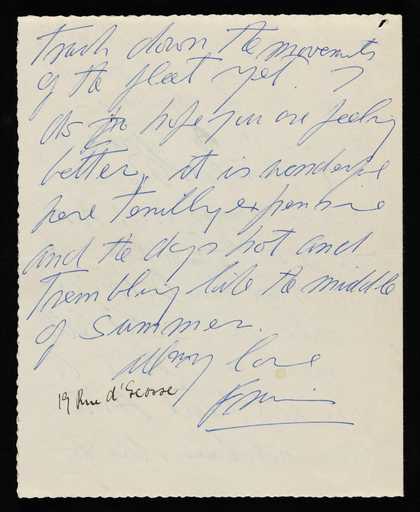 Track down the movements
of the fleet yet.
do hope you are feeling
better, it is wonderful
here terribly expensive
and the days hot and
trembling like the middle
of summer.
love
19 Rue d'Ecosse